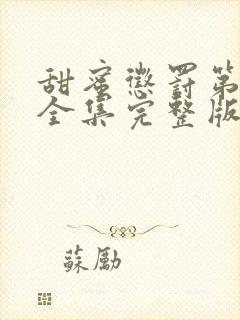 甜蜜懲罰第
全集完整版
蘇勵